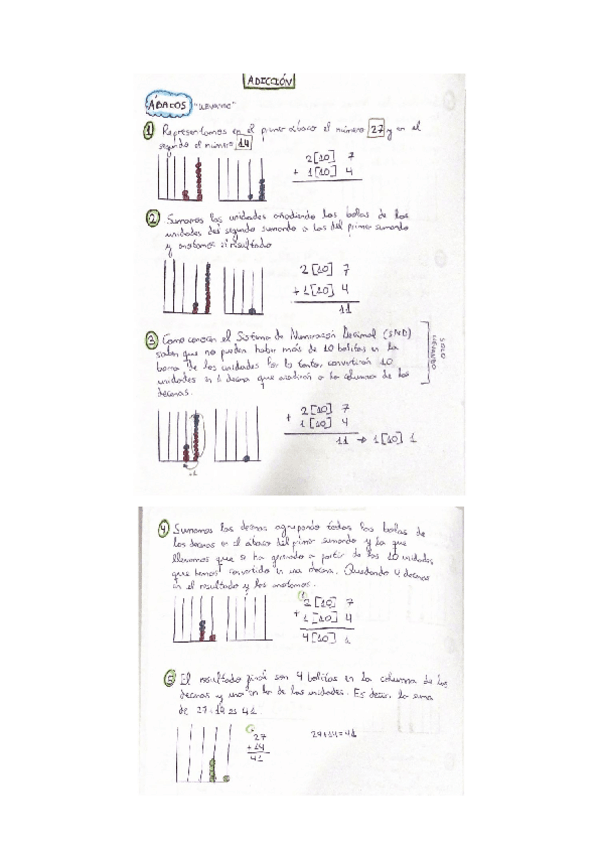 ADICCIÓN
ÁBACOS
1 Representamos en el primer ábaco el número 27 y en el
segundo el número 14
2[10] 7
+ 1[10] 4
2 Sumamos las unidades añadiendo las bolas de las
unidades del segundo sumando a las del primer sumando
y anotamos el resultado
2 [10] 7
+1[10] 4
11
3 Como conocen el Sistema de Numeración Decimal (SND)
saben que no pueden haber más de 10 bolitas en la
barra de las unidades. Por lo tanto, convertirán 10
unidades en 1 decena que añadirán a la columna de las
decenas.
SOLO
2[10] 7
+ 1[10] 4
11 → 1[10] 1
+1
4 Sumamos las decenas agrupando todas las bolas de
las decenas en el ábaco del primer sumando y la que
llevamos que se ha generado a partir de las 10 unidades
que hemos convertido en una decena. Quedando 4 decenas
en el resultado y las anotamos.
1
2[10] 7
+ 1[10] 4
4[10] 1
5 El resultado final son 4 bolitas en la columna de las
decenas y una en la de las unidades. Es decir, la suma
de 27 + es 41.
27
+14
41
27+14=41